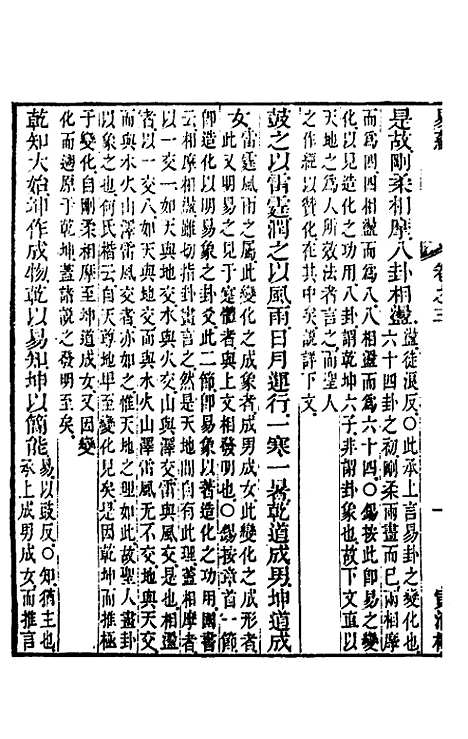 卷之三
是故剛柔相摩八卦相盪
盪徒浪反○此承上言易卦之變化也
六十四卦之初剛柔兩畫而已兩相摩
而爲四四相盪而爲八八相盪而爲六十四○錫按此卽易之變
化以見造化之功用八卦卽乾坤六子非謂卦象也故下文直以
天地之爲人所效法者言之而聖人
之作經以贊化在其中矣說詳下文
鼓之以雷霆潤之以風雨日月運行一寒一暑乾道成男坤道成
女
雷霆風雨之屬此變化之成象者成男成女此變化之成形者
此又明易之見于實體者與上文相發明也○錫按章首一節
卽造化以明易象之卦爻此二節卽易象以著造化之功用圖書
云相摩相盪雖切指卦畫言之然是天地間自有此理蓋相摩者
以一交一如天與地交水與火交山與澤交雷與風交是也相盪
者以一交八如天與地交而與水火山澤雷風無不交地與天交
而與水火山澤雷風交者亦如之惟天地之理如此故聖人畫卦
以象之也何氏楷云自天尊地卑至變化見矣是因乾坤而推極
于變化自剛柔相摩至坤道成女又因變
化而遡原于乾坤蓋諸說之發明至矣
乾知大始坤作成物乾以易知坤以簡能
易以豉反○知猶主也
承上成男成女而推言